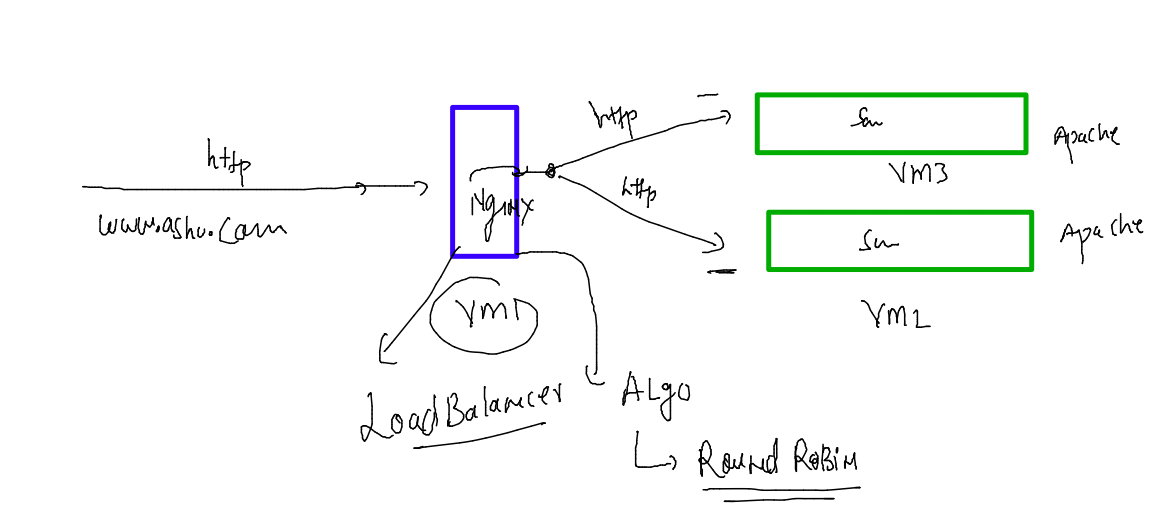 http
www.ashu.com
Nginx
VM1
http
http
Apache
VM3
Apache
VM2
LoadBalancer
ALgo
Round RoBin